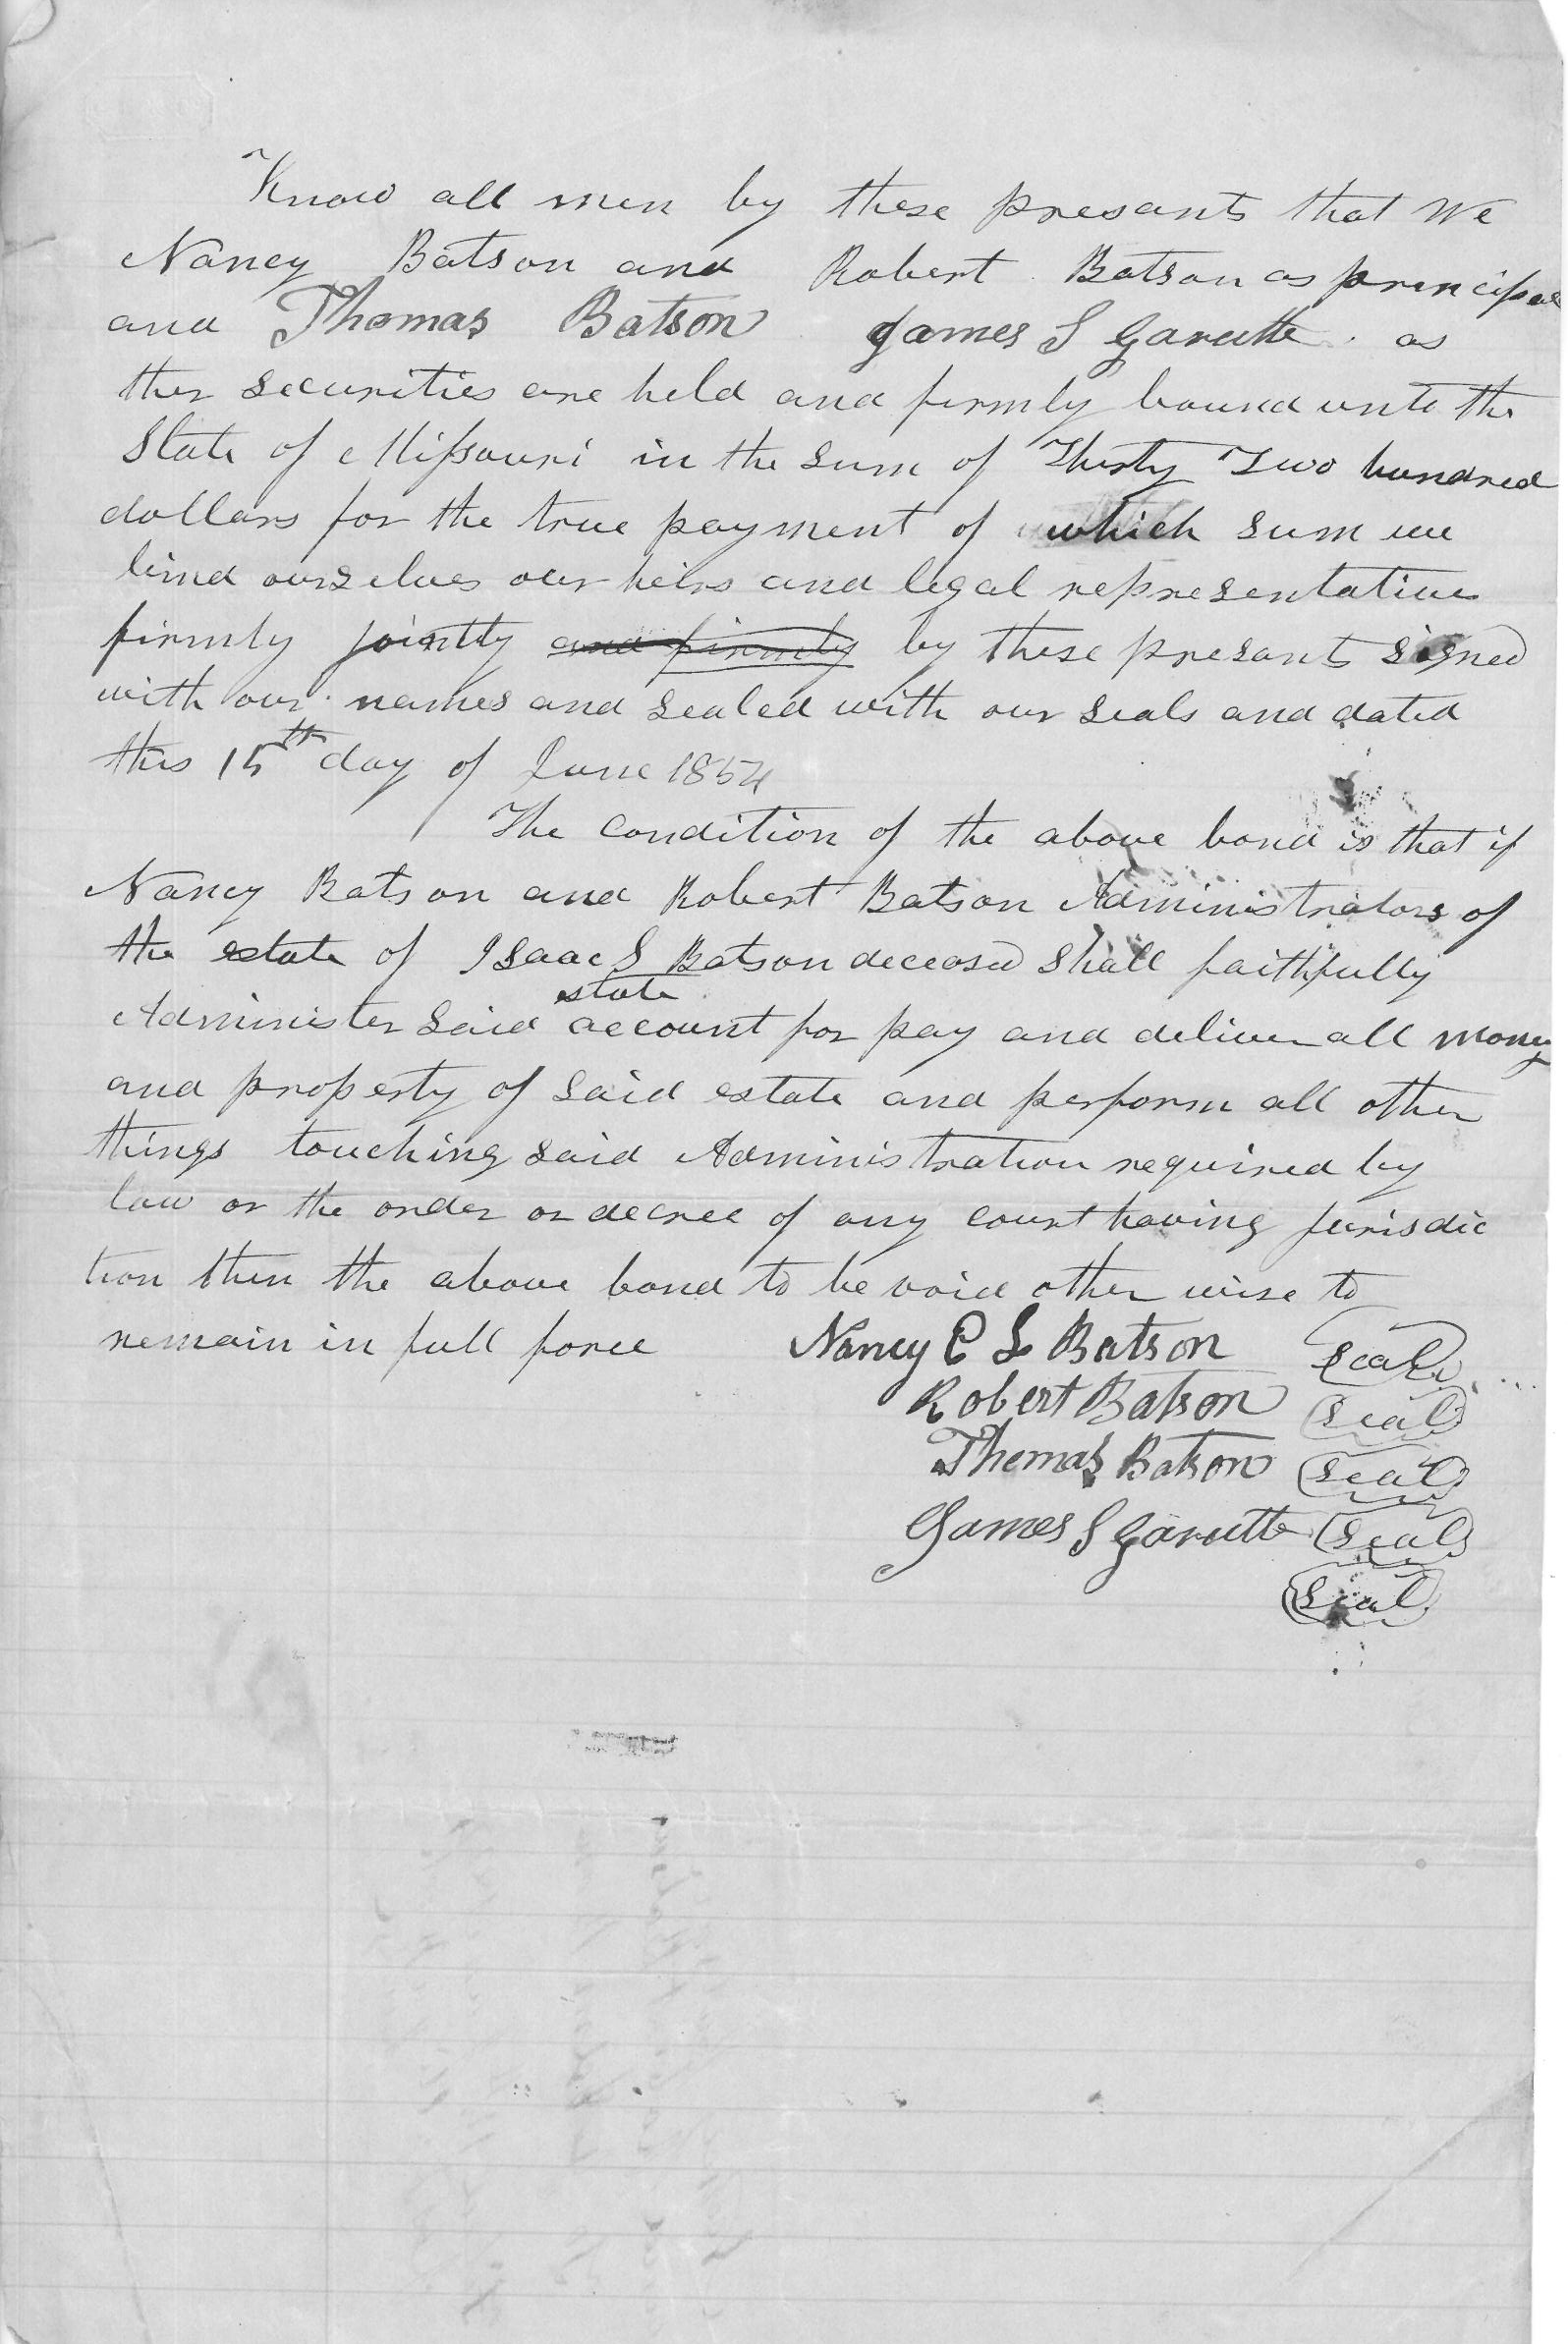 Know all men by these presants that We
Nancy Batson and Robert Batson as principal
and Thomas Batson James S Garutte as
ther securities are held and firmly bound unto the
State of Missouri in the sum of Thirty Two hundred
dollars for the true payment of which sum we
bind ourselves our heirs and legal representatives
firmly jointly and firmly by these presants signed
with our names and sealed with our seals and dated
this 15th day of June 1854
The condition of the above bond is that if
Nancy Batson and Robert Batson Administrators of
the estate of Isaac S Batson deceased shall faithfully
state
Administer said account for pay and deliver all money
and property of said estate and perform all other
things touching said Administration required by
law or the order or decree of any court having jurisdic
tion then the above bond to be void other wise to
remain in full force Nancy E L Batson Seal
Robert Batson Seal
Thomas Batson Seal
James S Garutte Seal
Seal